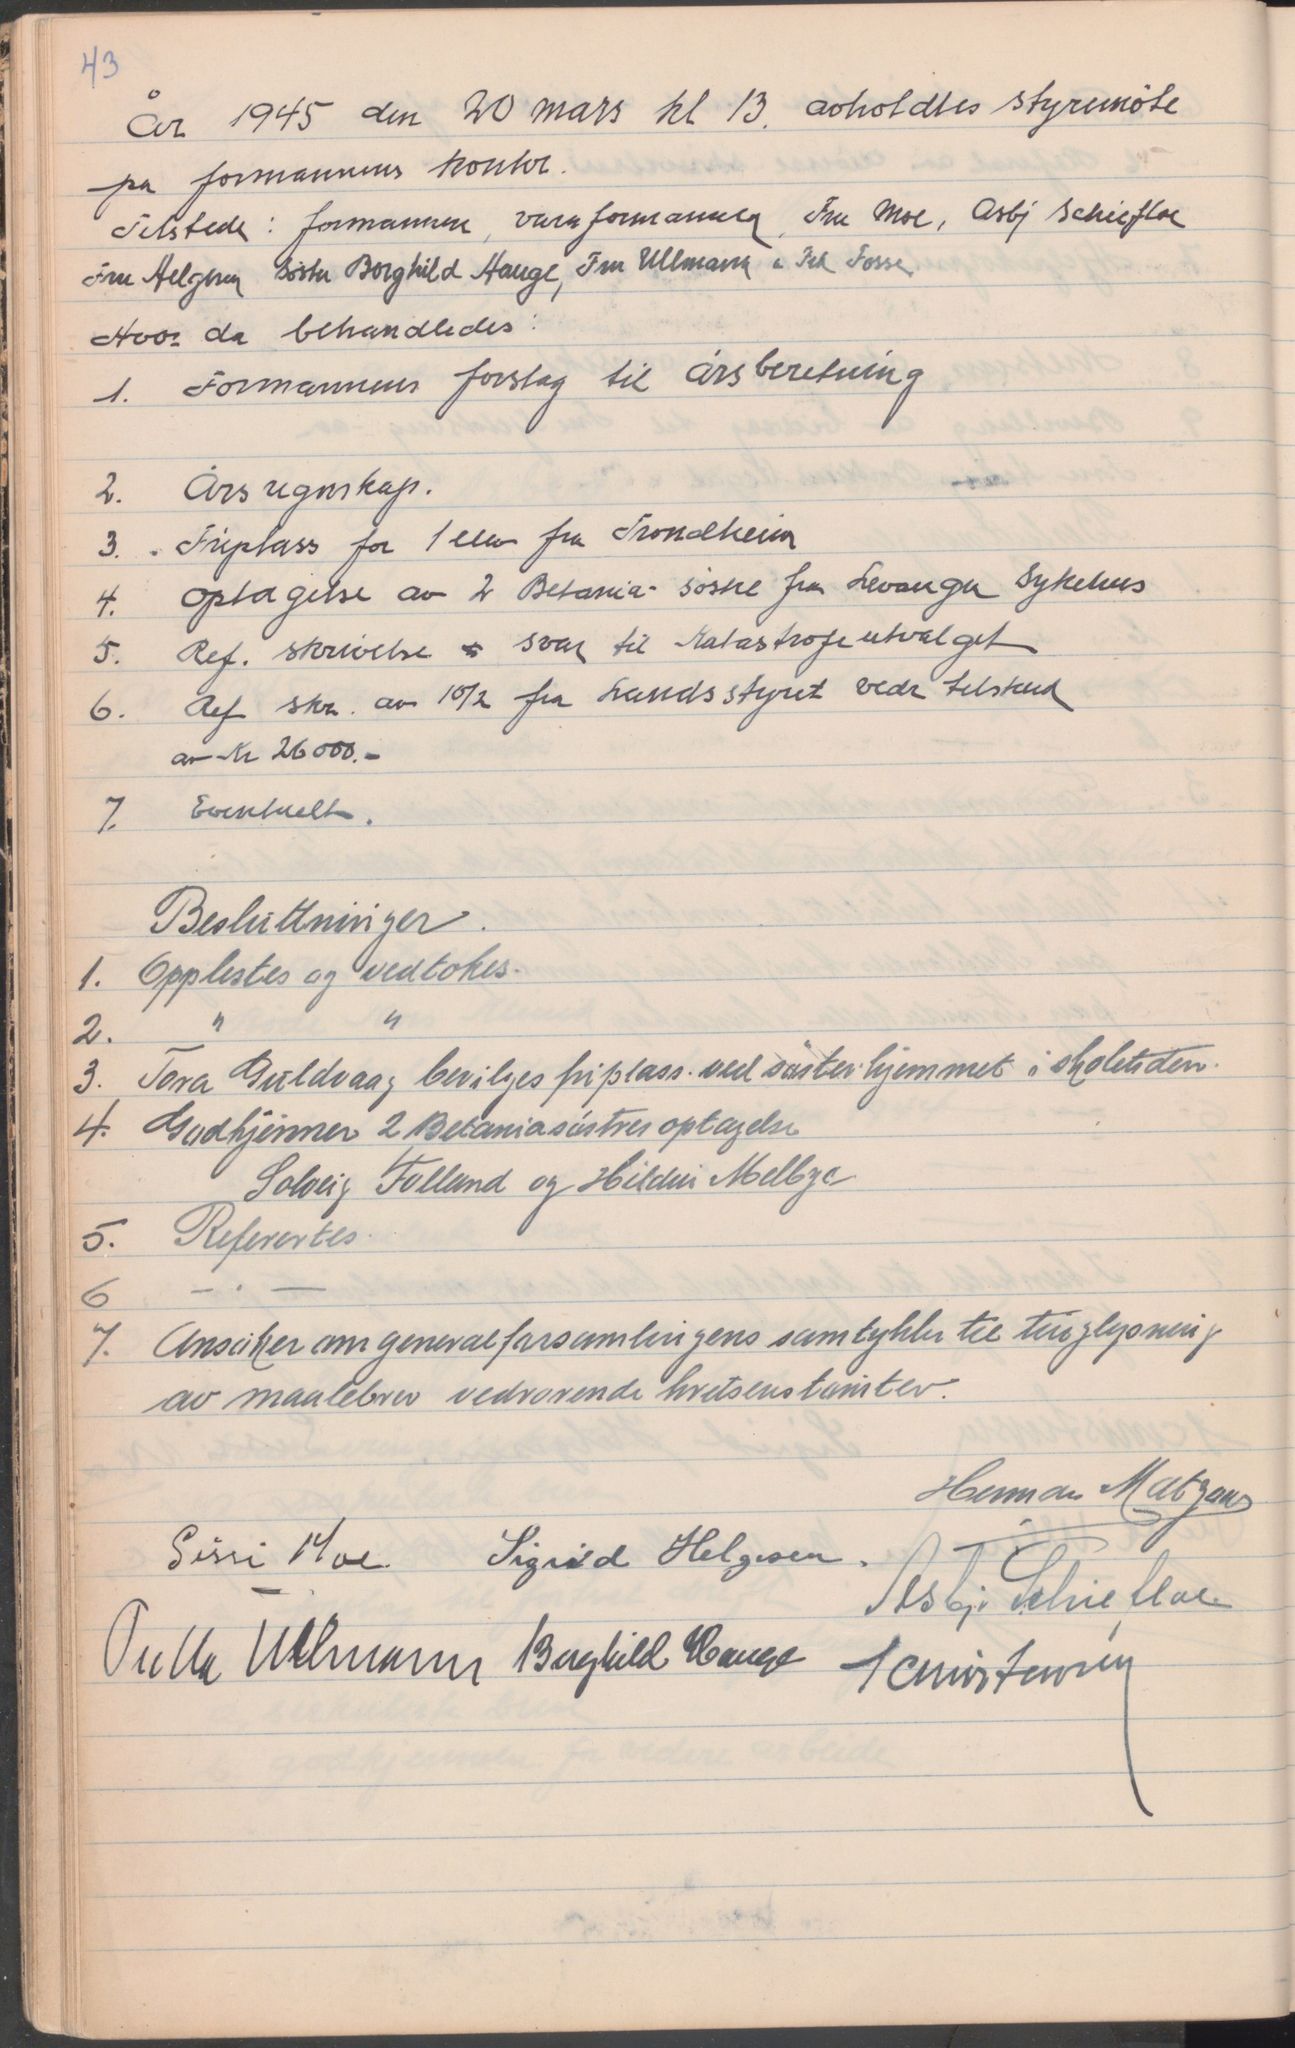 43
År 1945 den 20 mars kl 13. avholdtes styremöte
pa formannens kontor.
Tilstede: formannen, varaformannen, Fru Moe, Asbj Schiefloe
Fru Helgesen Söster Borghild Hauge, Fru Ullmann & Frk Fosse.
Hvor da behandledes:
1. Formannens forslag til årsberetning
2. Årsregnskap.
3. Friplass for 1 elev fra Trondheim
4. optagelse av 2 Betania-söstre fra Levanger Sykehus
5. Ref. skrivelse & svar til Katastrofeutvalget
6. Ref skr. av 10/2 fra Landsstyret vedr tilskud
av Kr 26000.-
7. Eventuelt.
Besluttninger.
1. Opplestes og vedtokes.
2. " "
3. Tora Guldvaag bevilges friplass ved söster hjemmet i skoletiden.
4. Godkjenner 2 Betaniasöstres optagelse
Solveig Folland og Hildur Melbye
5. Refertes.
6 - . -
7. Ansöker om generalforsamlingens samtykke til tinglysning
av maalebrev vedrorende kretsens tomter.
Herman Matzow
Sissi Moe. Sigrid Helgesen.
Asbj. Schiefloe
Tulla Ullmann Borghild Hauge